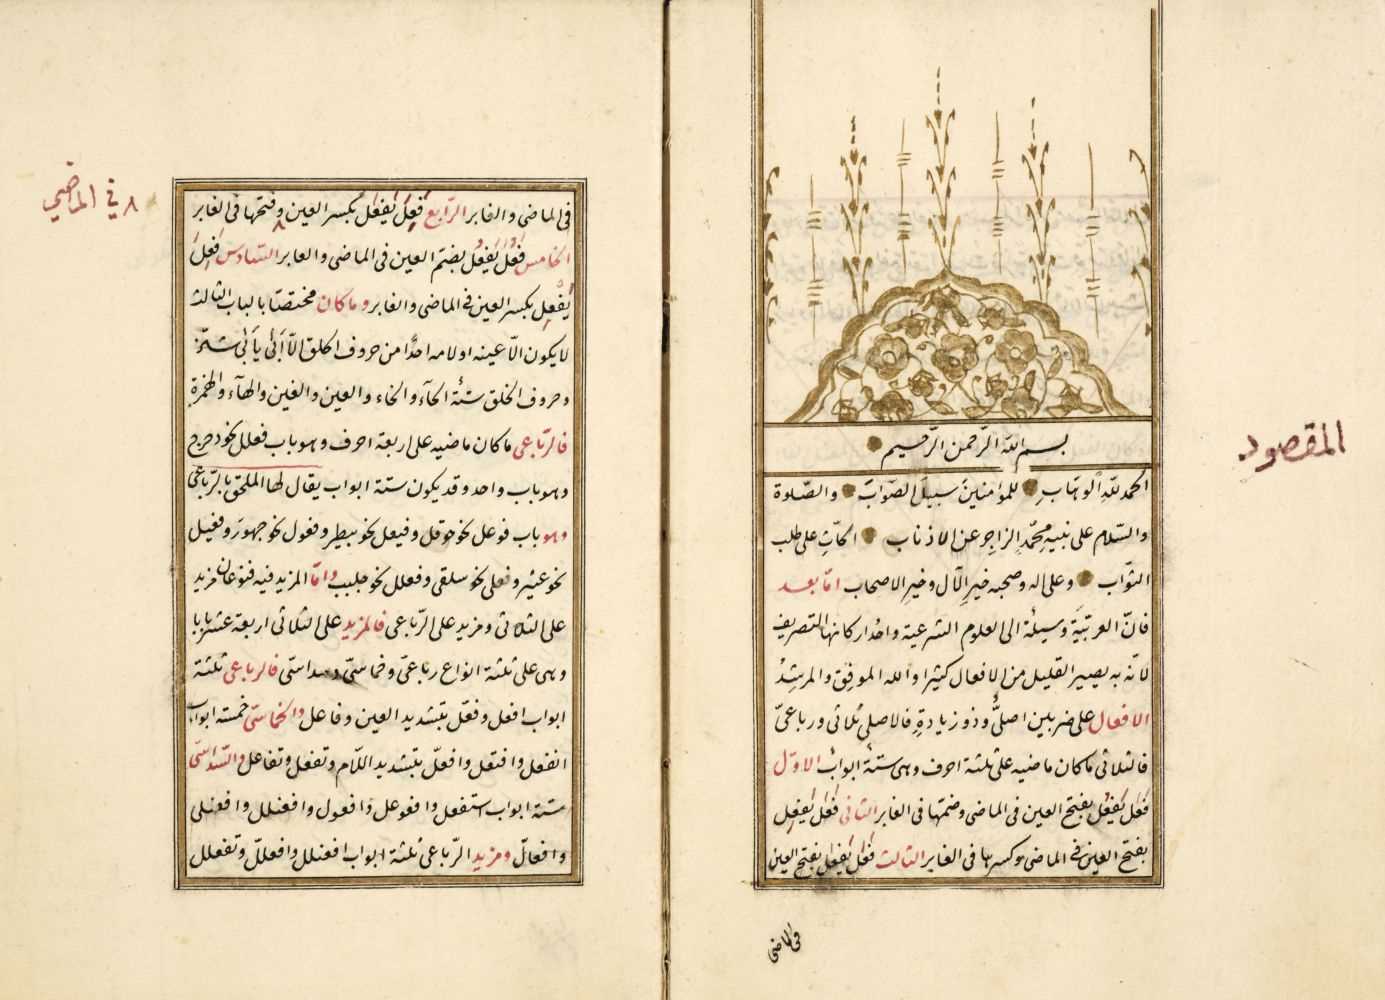 المقصود
بسم الله الرحمن الرحيم
الحمد لله الوهاب للمؤمنين سبيل الصواب والصلوة
والسلام على نبيه محمد الزاجر عن الاذناب الحاث على طلب
الثواب وعلى اله وصحبه خير الآل وخير الاصحاب اما بعد
فان العربية وسيلة الى العلوم الشرعية واحد اركانها التصريف
لانه به يصير القليل من الافعال كثيرا والله الموفق والمرشد
الافعال على ضربين اصلى وذو زيادة فالاصلى ثلاثى ورباعى
فالثلاثى ما كان ماضيه على ثلثة احرف وهى ستة ابواب الاول
فعل يفعل بفتح العين فى الماضى وضمها فى الغابر الثانى فعل يفعل
بفتح العين فى الماضى وكسرها فى الغابر الثالث فعل يفعل بفتح العين
فى الماضى
فى الماضى والغابر الرابع فعل يفعل بكسر العين وفتحها فى الغابر
٨ في الماضي
الخامس فعل يفعل بضم العين فى الماضى والغابر السادس فعل
يفعل بكسر العين فى الماضى والغابر وما كان مختصا بالباب الثالث
لا يكون الا عينه او لامه احدا من حروف الحلق الا ابى يأبى شاذ
وحروف الحلق ستة الحاء والخاء والعين والغين والهاء والهمزة
فالرباعى ما كان ماضيه على اربعة احرف وهو باب فعلل نحو دحرج
وهو باب واحد وقد يكون ستة ابواب يقال لها الملحق بالرباعى
وهو باب فوعل نحو حوقل وفيعل نحو بيطر وفعول نحو جهور وفعيل
نحو عثير وفعلى نحو سلقى وفعلل نحو جلبب واما المزيد فيه فنوعان مزيد
على الثلاثى ومزيد على الرباعى فالمزيد على الثلاثى اربعة عشر بابا
وهى على ثلثة انواع رباعى وخماسى وسداسى فالرباعى ثلثة
ابواب افعل وفعل بتشديد العين وفاعل والخماسى خمسة ابواب
انفعل وافتعل وافعل بتشديد اللام وتفعل وتفاعل والسداسى
ستة ابواب استفعل وافعوعل وافعول وافعنلل وافعنلى
وافعال ومزيد الرباعى ثلثة ابواب افعنلل وافعلل وتفعلل